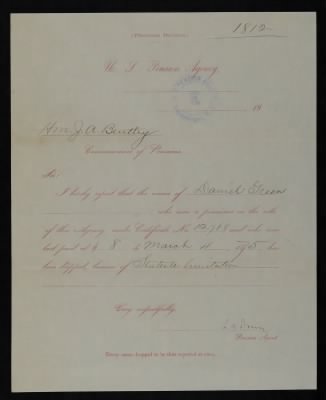 1812
(Pensioner Dropped.)
U. S. Pension Agency,
18
Hon. J. A. Bentley
Commissioner of Pensions.
Sir:
I hereby report that the name of Daniel Green
who was a pensioner on the rolls
of this Agency, under Certificate No. and who was
last paid at $ 8 to March 4 has
been dropped, because of Statute Limitation
Very respectfully,
Pension Agent.
Every name dropped to be thus reported at once.